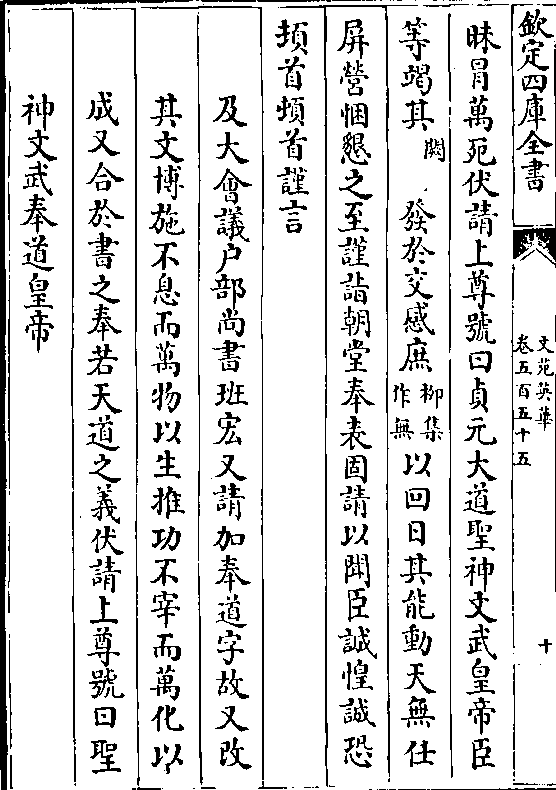 欽定四庫全書
文苑英華
卷五百五十五
十
昧冒萬死伏請上尊號曰貞元大道聖神文武皇帝臣
等竭其闕發於交感庶柳集作無以回日其能動天無任
屏營悃懇之至謹詣朝堂奉表固請以聞臣誠惶誠恐
頓首頓首謹言
及大會議户部尚書班宏又請加奉道字故又改
其文博施不息而萬物以生推功不宰而萬化以
成又合於書之奉若天道之義伏請上尊號曰聖
神文武奉道皇帝